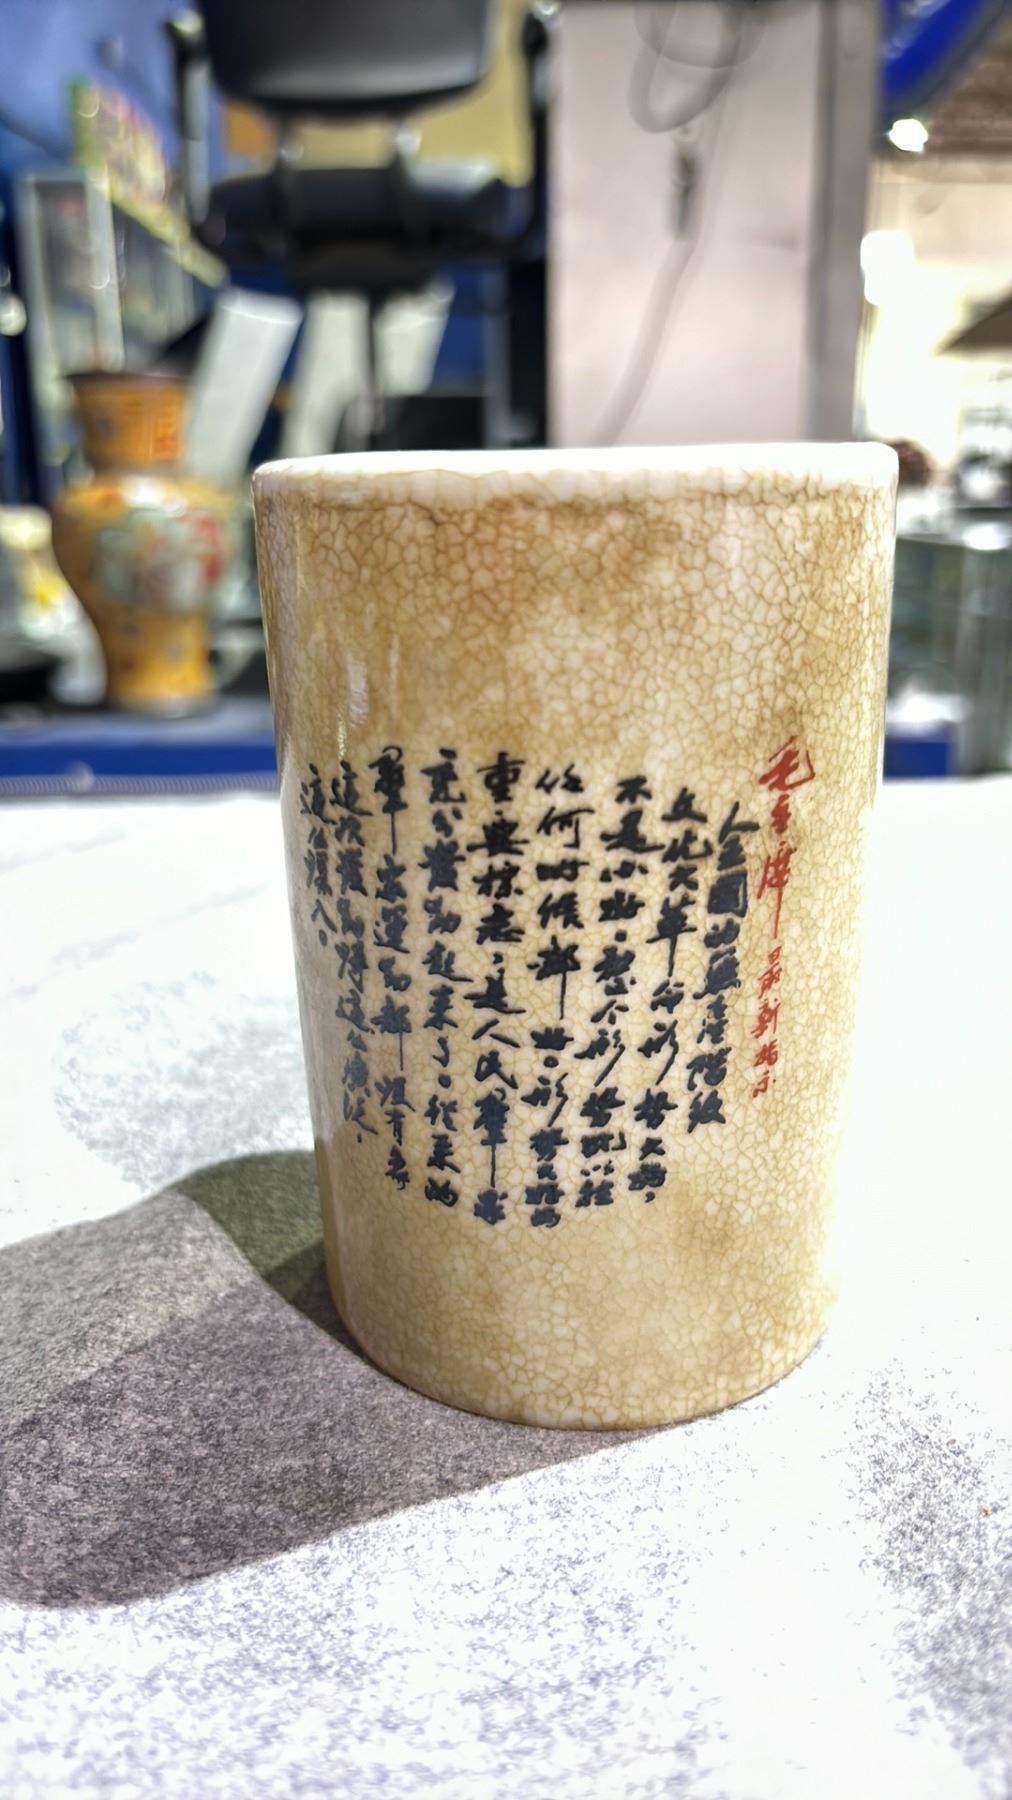 毛主席最新指示
全國的無產階級
文化大革命形势大好，
不是小好。整个形势比以往
任何时候都好。形势大好的
重要標志，是人民羣衆
充分發動起来了。從来的
羣衆運動都没有象
這次發動得這么廣泛，
這么深入。